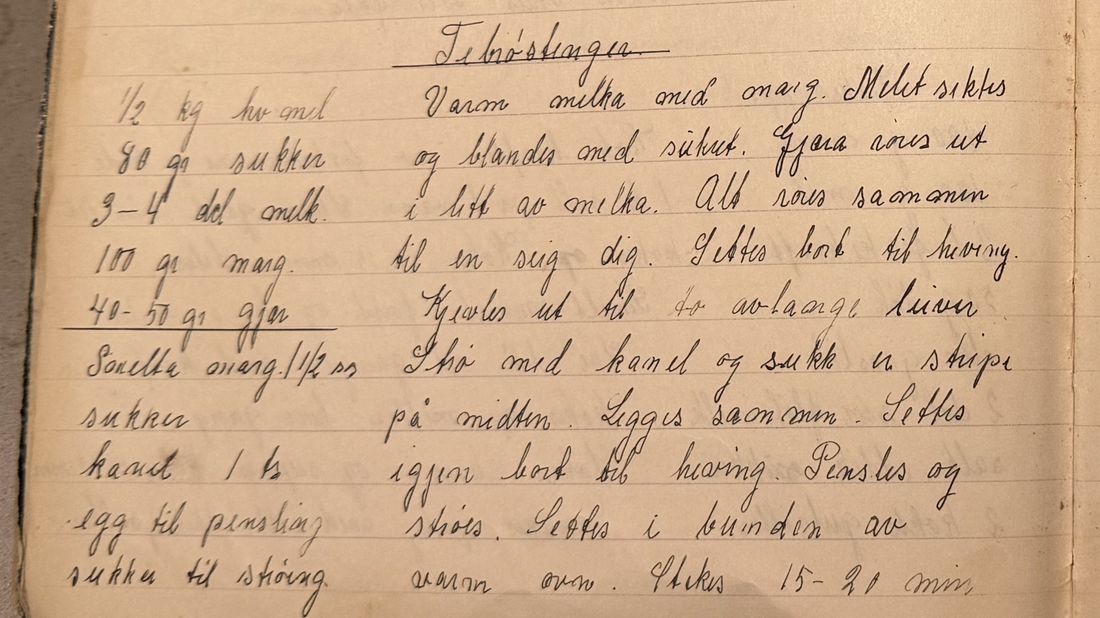 Tebrøstenger.
1/2 kg hv mel
80 gr sukker
3-4 del melk.
100 gr marg.
40-50 gr gjær
Smelta marg. 1 1/2 ss
sukker
kanel 1 ts
egg til pensling
sukker til strøing.
Varm melka med marg. Melet siktes
og blandes med sukret. Gjæra røres ut
i litt av melka. Alt røres sammen
til en seig dig. Settes bort til heving.
Kjevles ut til to avlange leiver
Strø med kanel og sukk er stripe
på midten. Legges sammen. Settes
igjen bort til heving. Pensles og
strøes. Settes i bunden av
varm ovn. Stekes 15-20 min